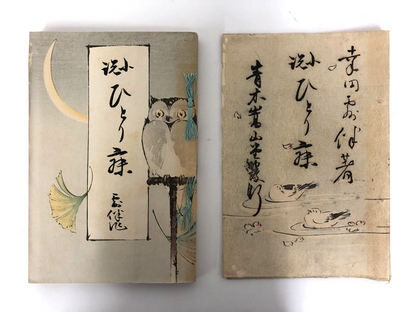 小説
ひとり寐
露伴
幸田露伴著
小説
ひとり寐
青木嵩山堂發行